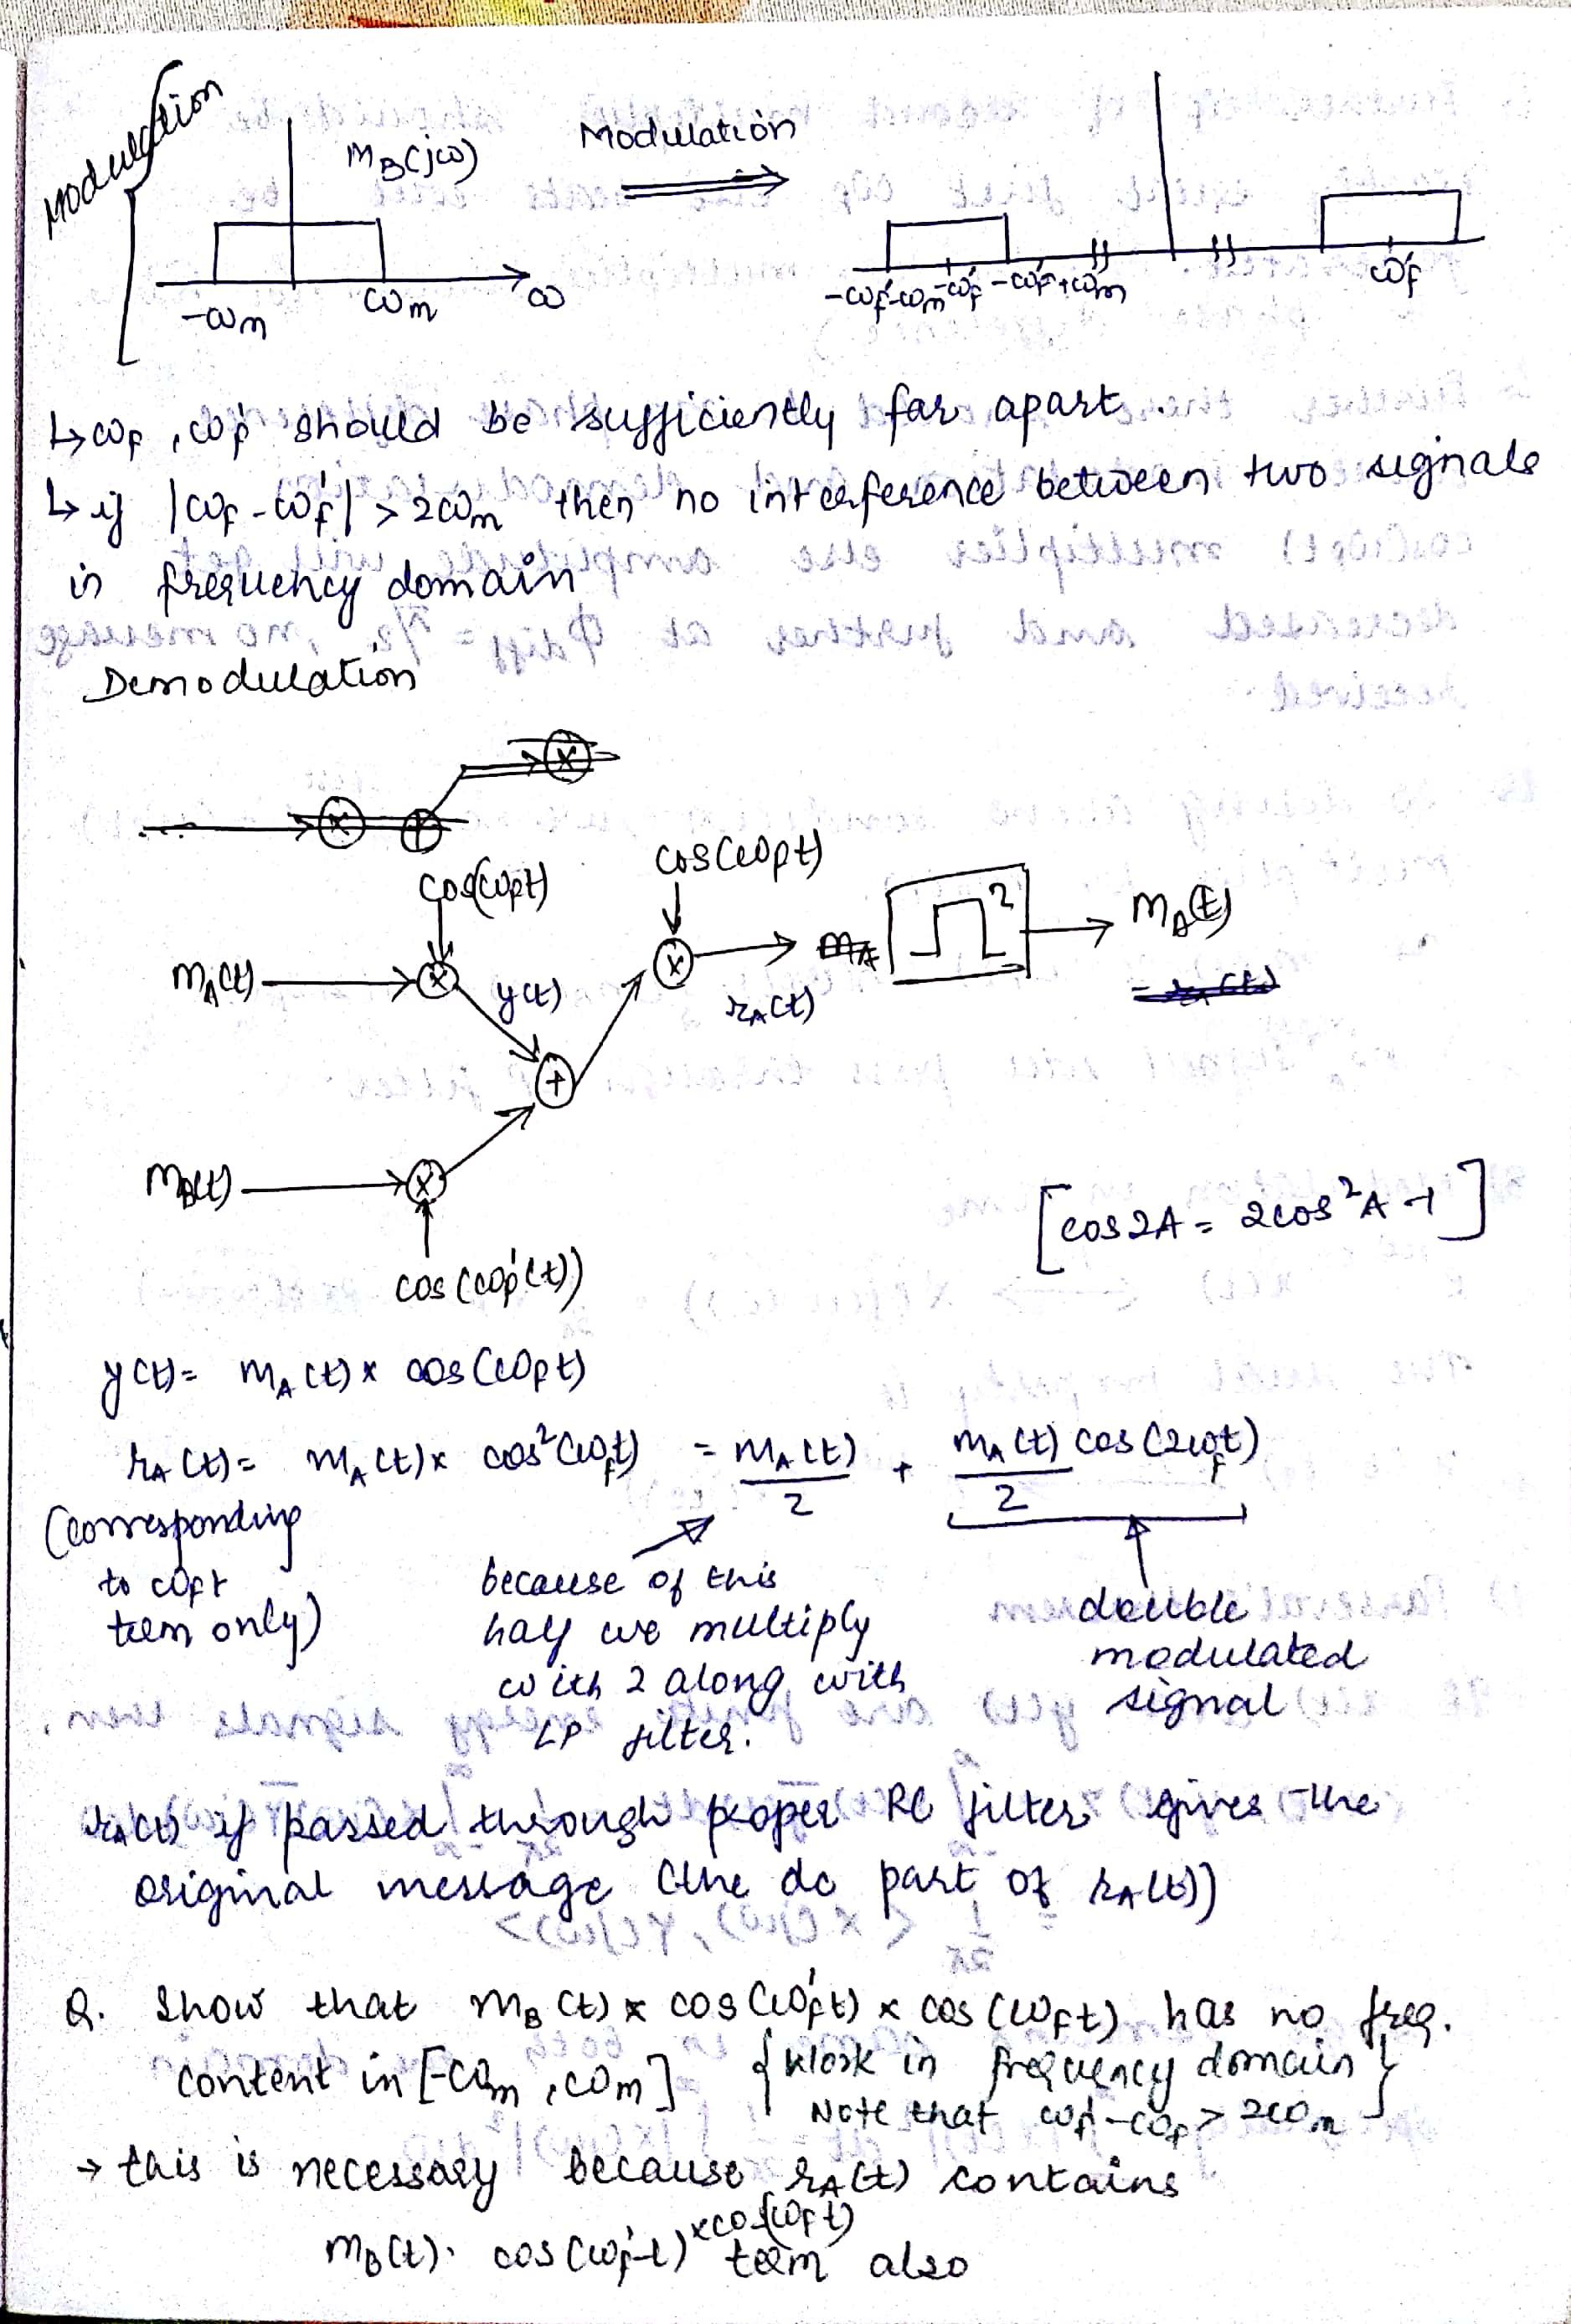 Modulation
M_B(jω)
Modulation
-ω_m
ω_m
ω
-ω_f'-ω_m
-ω_f'
-ω_f'+ω_m
ω_f'
↳ ω_f, ω_f' should be sufficiently far apart.
↳ if |ω_f - ω_f'| > 2ω_m then no interference between two signals
in frequency domain
Demodulation
cos(ω_f t)
cos(ω_f t)
m_A(t)
y(t)
r_A(t)
2
m_A(t)
m_B(t)
cos(ω_f'(t))
[cos2A = 2cos²A -1]
y(t) = m_A(t) x cos(ω_f t)
r_A(t) = m_A(t) x cos²(ω_f t) = m_A(t)/2 + m_A(t)/2 cos(2ω_f t)
(corresponding
to ω_f t
term only)
because of this
half we multiply
with 2 along with
LP filter.
double
modulated
signal
r_A(t) if passed through proper RC filter gives the
original message (the dc part of r_A(t))
Q. Show that m_B(t) x cos(ω_f't) x cos(ω_f t) has no freq.
content in [-ω_m, ω_m] {Work in frequency domain
Note that ω_f' - ω_f > 2ω_m}
→ this is necessary because r_A(t) contains
m_B(t). cos(ω_f't) x cos(ω_f t) term also